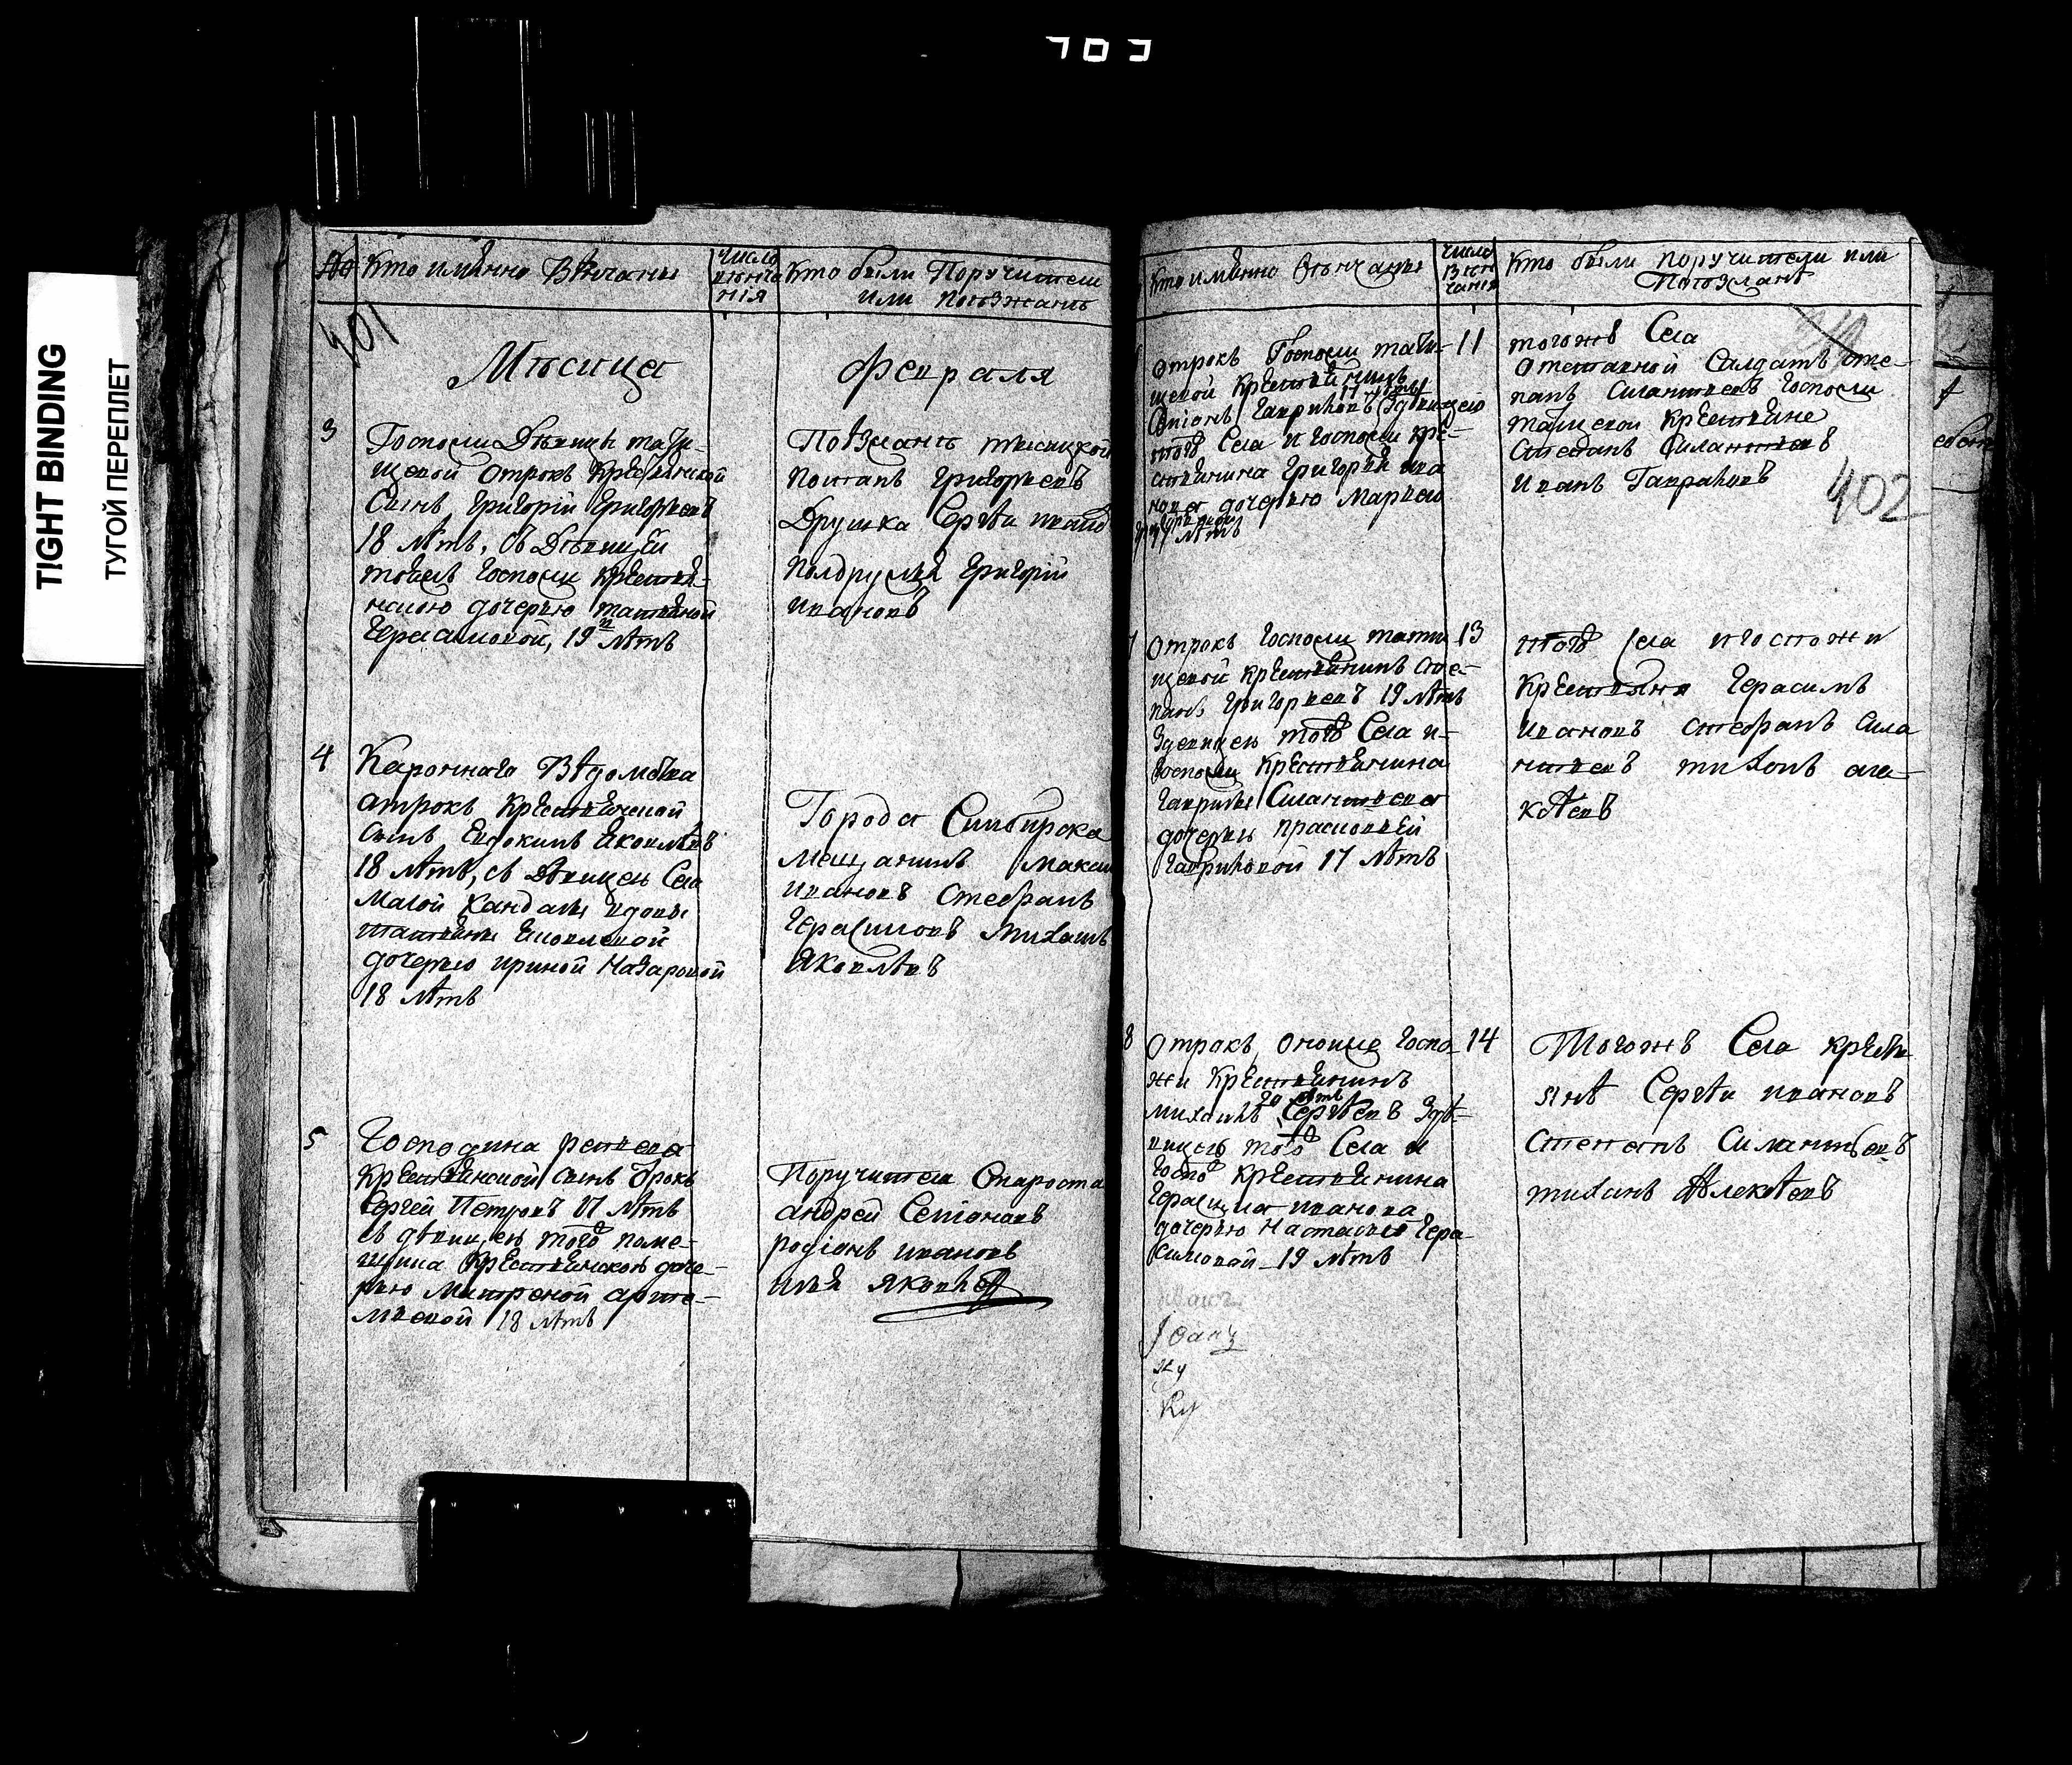 703
TIGHT BINDING
ТУГОЙ ПЕРЕПЛЕТ
№ Кто имѣнно Вѣнчаны
число вѣнча нія
Кто были Поручители
или поѣзжанѣ
401
Мѣсяца Февраля
3
Госпожи Дѣвицы тати-
щевой отрокъ крестьянской
Сынъ Григорій Григорьевъ
18 лѣтъ, съ Дѣвицей
тоежъ Госпожи крестья-
нскою дочерью татьяной
Герасимовой, 19 лѣтъ
Поѣзжанѣ тысяцкой
Потапъ Григорьевъ
Дружка Сергѣй иванъ
Полдружья Григорій
ивановъ
4
Казоннаго Вѣдомства
атрокъ крестьянской
сынъ Евдокимъ Яковлевъ
18 лѣтъ, съ Дѣвицею Села
Малой Кандалы вдовы
татьяны Яковлевой
дочерью ириной Назаровой
18 лѣтъ
Города Симбирска
Мещанинъ Макси
ивановъ Стефанъ
Герасимовъ Михаилъ
Яковлѣвъ
5
Господина
крестьянской сынъ отрокъ
Сергей Петровъ 17 лѣтъ
съ дѣвицею того поме-
щика крестьянскою доче-
рью Матреной арте-
мьевой 18 лѣтъ
Поручители Староста
андрей Семіоновъ
родіонъ ивановъ
илья яковлевъ
Кто имѣнно Вѣнчаны
число Вѣн чанія
Кто были поручители или
Поѣзжанѣ
Отрокъ Госпожи тати-
щевой крестьянинъ
17 лѣтъ
Семіонъ Гавриловъ Здѣвицею
тогоже Села и госпожи кре-
стьянина Григорья ива
нова дочерью Марьею
Григорьевой
лѣтъ
11
тогожъ Села
Отставной Салдатъ сте-
панъ Силантьевъ Госпожи
татищевой крестьяне
Степанъ Силантьевъ
иванъ Гавриловъ
402
7
Отрокъ Госпожи тати
щевой крестьянинъ сте-
панъ Григорьевъ 19 лѣтъ
Здевицею тогожъ Села и-
Госпожи крестьянина
Гаврилы Силантьева
дочерью прасковьей
Гавриловой 17 лѣтъ
13
тогожъ Села и госпожи
Крестьяня Герасимъ
ивановъ стефанъ Сила
нтьевъ тихонъ але-
ксѣевъ
8
Отрокъ, оноице Госпо-
жи крестьянинъ
20 лѣтъ
михаилъ Сергѣевъ Здѣ-
вицею тогожъ Села и
Госпожи крестьянина
Герасима иванова
дочерью Настасьею Гера
симовой 19 лѣтъ
14
Тогожъ Села кресть
янѣ Сергѣй ивановъ
Степанъ Силантьевъ
тихонъ Алексѣевъ